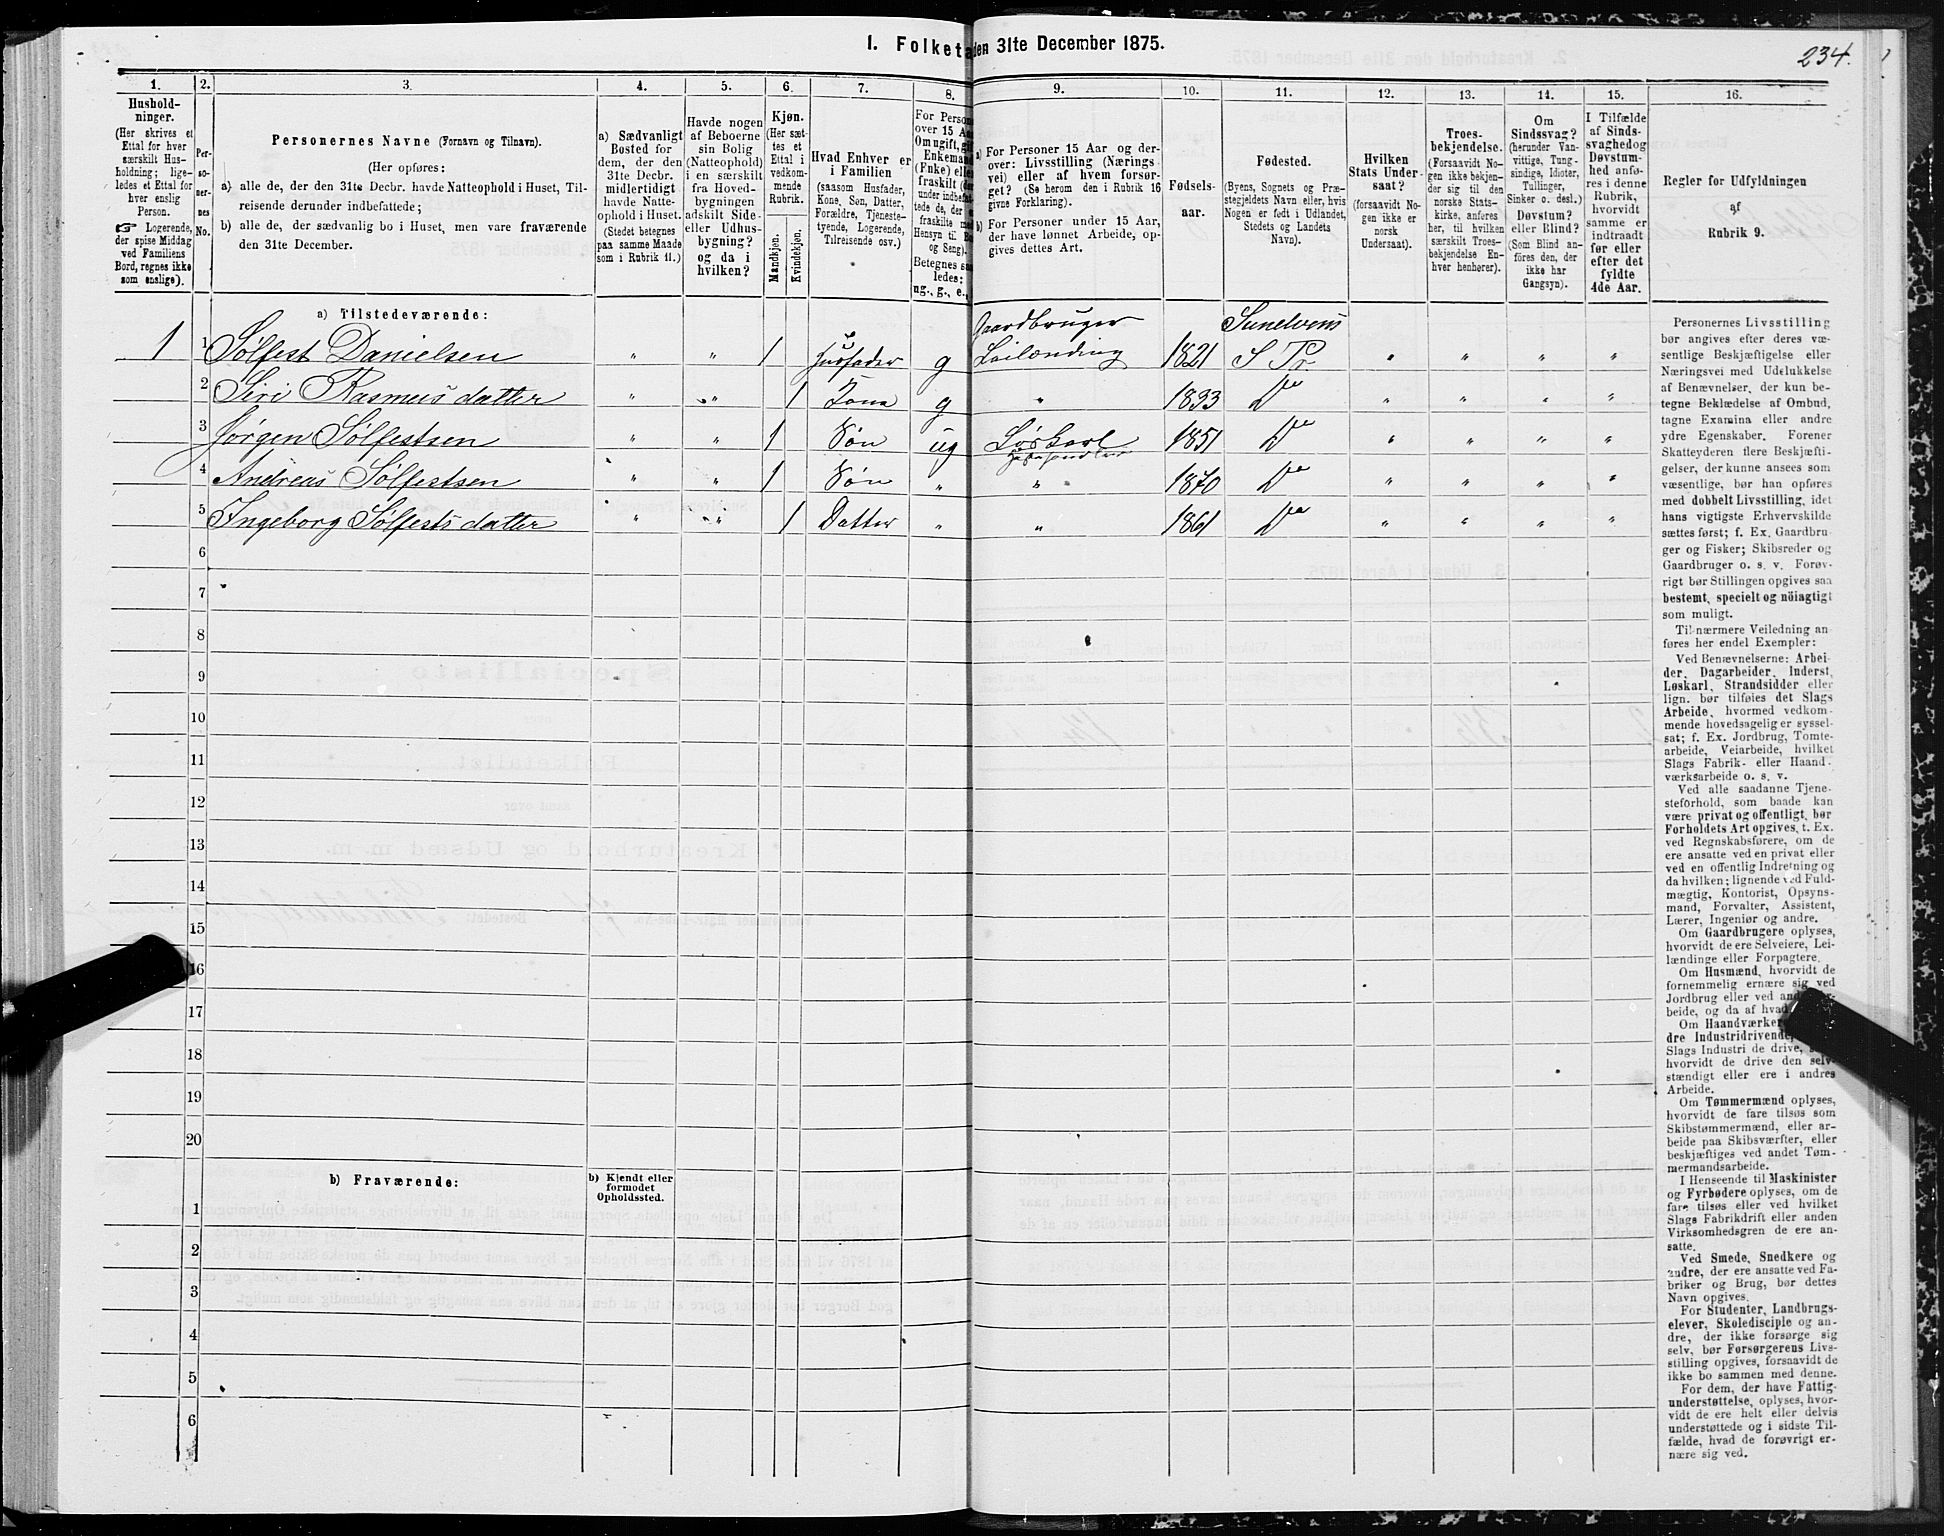 234.
I. Folketa
den 31te December 1875.
1. 2. 3. 4. 5. 6. 7. 8. 9. 10. 11. 12. 13. 14. 15. 16.
Hushold-
ninger.
(Her skrives et
Ettal for hver
særskilt Hus-
holdning; lige-
ledes et Ettal for
hver enslig
Person.
☞ Logerende,
der spise Middag
ved Familiens
Bord, regnes ikke
som enslige).
Per-
so-
ner-
nes
No.
Personernes Navne (Fornavn og Tilnavn).
(Her opføres:
a) alle de, der den 31te Decbr. havde Natteophold i Huset, Til-
reisende derunder indbefattede;
b) alle de, der sædvanlig bo i Huset, men vare fraværende
den 31te December.
a) Sædvanligt
Bosted for
dem, der den
31te Decbr.
midlertidigt
havde Natte-
ophold i Huset.
(Stedet betegnes
paa samme Maade
som i Rubrik 11.)
Havde nogen
af Beboerne
sin Bolig
(Natteophold)
i en særskilt
fra Hoved-
bygningen
adskilt Side-
eller Udhus-
bygning?
og da i
hvilken?
Kjøn.
(Her sæt-
tes et
Ettal i
vedkom-
mende
Rubrik.
Mandkjøn.
Kvindekjøn.
Hvad Enhver er
i Familien
(saasom Husfader,
Kone, Søn, Datter,
Forældre, Tjeneste-
tyende, Logerende,
Tilreisende osv.)
For Person
over 15 Aar
Om ugift, gif
Enkemand
(Enke) eller
fraskilt (de
under indbefat-
tede de, der e
fraskilte med
Hensyn til Bo
og Seng).
Betegnes saa
ledes:
ug., g., e.,
a) For Personer 15 Aar og der-
over: Livsstilling (Nærings
vei) eller af hvem forsør-
get? (Se herom den i Rubrik 16
givne Forklaring).
b) For Personer under 15 Aar,
der have lønnet Arbeide, op-
gives dettes Art.
Fødsels-
aar.
Fødested.
(Byens, Sognets og Præ-
stegjeldets Navn eller, hvis
Nogen er født i Udlandet,
Stedets og Landets
Navn).
Hvilken
Stats Under-
saat?
(forsaavidt No-
gen ikke er
norsk
Undersaat).
Troes-
bekjendelse.
(Forsaavidt No-
gen ikke bekjen-
der sig til den
norske Stats-
kirke, anføres
her, til hvilken
særskilt Troes-
bekjendelse En-
hver henhører).
Om
Sindssvag?
(herunder Van-
vittige, Tung-
sindige, Idioter,
Tullinger,
Sinker o. desl.)
Døvstum?
eller Blind?
(Som Blind an-
føres den, der
ikke har
Gangsyn).
I Tilfælde
af Sinds-
svaghedog
Døvstum-
hed anfø-
res i denne
Rubrik,
hvorvidt
samme er
indtraadt
før eller
efter det
fyldte
4de Aar.
Regler for Udfyldningen
af
Rubrik 9.
a) Tilstedeværende:
Gaardbruger Sunelvens
1 1 Sølfest Danielsen " " 1 Husfader g Leilænding 1821 S Pr " " " "
2 Siri Rasmusdatter " " 1 Kone g " 1833 Do " " " "
3 Jørgen Sølfestsen " " 1 Søn ug Løskarl 1851 Do " " " "
4 Andreas Sølfestsen " " 1 Søn " " 1870 Do " " " "
5 Ingeborg Sølfestsdatter " " 1 Datter " " 1861 Do " " " "
6
7
8
9
10
11
12
13
14
15
16
17
18
19
20
b) Fraværende:
b) Kjendt eller
formodet
Opholdssted.
1
2
3
4
5
6
Personernes Livsstilling
bør angives efter deres væ-
sentlige Beskjæftigelse eller
Næringsvei med Udelukkelse
af Benævnelser, der kun be-
tegne Beklædelse af Ombud,
tagne Examina eller andre
ydre Egenskaber. Forener
Skatteyderen flere Beskjæfti-
gelser, der kunne ansees som
væsentlige, bør han opføres
med dobbelt Livsstilling, idet
hans vigtigste Erhvervskilde
sættes først; f. Ex. Gaardbru-
ger og Fisker; Skibsreder og
Gaardbruger o. s. v. Forøv-
rigt bør Stillingen opgives saa
bestemt, specielt og nöiagtigt
som muligt.
Til nærmere Veiledning an
føres her endel Exempler:
Ved Benævnelserne: Arbei-
der, Dagarbeider, Inderst,
Løskarl, Strandsidder eller
lign. bør tilføies det Slags
Arbeide, hvormed vedkom-
mende hovedsagelig er syssel-
sat; f. Ex. Jordbrug, Tomte-
arbeide, Veiarbeide, hvilket
Slags Fabrik- eller Haand-
værksarbeide o. s. v.
Ved alle saadanne Tjene-
steforhold, som baade kan
være privat og offentligt, bør
Forholdets Art opgives, t. Ex.
ved Regnskabsførere, om de
ere ansatte ved en privat eller
ved en offentlig Indretning og
da hvilken; lignende ved Fuld-
mægtig, Kontorist, Opsyns-
mand, Forvalter, Assistent,
Lærer, Ingeniør og andre.
Om Gaardbrugere oplyses,
hvorvidt de ere Selveiere, Lei-
lændinge eller Forpagtere.
Om Husmænd, hvorvidt de
fornemmelig ernære sig ved
Jordbrug eller ved and r-
beide, og da af hvad
Om Haandværker
dre Industridrivende
Slags Industri de drive,
hvorvidt de drive den selv-
stændigt eller ere i andres
Arbeide.
Om Tømmermænd oplyses,
hvorvidt de fare tilsøs som
Skibstømmermænd, eller ar-
beide paa Skibsværfter, eller
beskjæftiges ved andet Tøm-
mermandsarbeide.
I Henseende til Maskinister
og Fyrbødere oplyses, om de
fare tilsøs eller ved hvilket
Slags Fabrikdrift eller anden
Virksomhedsgren de ere an-
satte.
Ved Smede, Snedkere og
andre, der ere ansatte ved Fa-
briker og Brug, bør dettes
Navn opgives.
For Studenter, Landbrugs-
elever, Skoledisciple og an-
dre, der ikke forsørge sig
selv, bør Forsørgerens Livs-
stilling opgives, forsaavidt de
ikke bo sammen med denne.
For dem, der have Fattig-
understøttelse, oplyses, hvor-
vidt de ere helt eller delvis
understøttede og i sidste Til-
fælde, hvad de forøvrigt er-
nære sig ved.